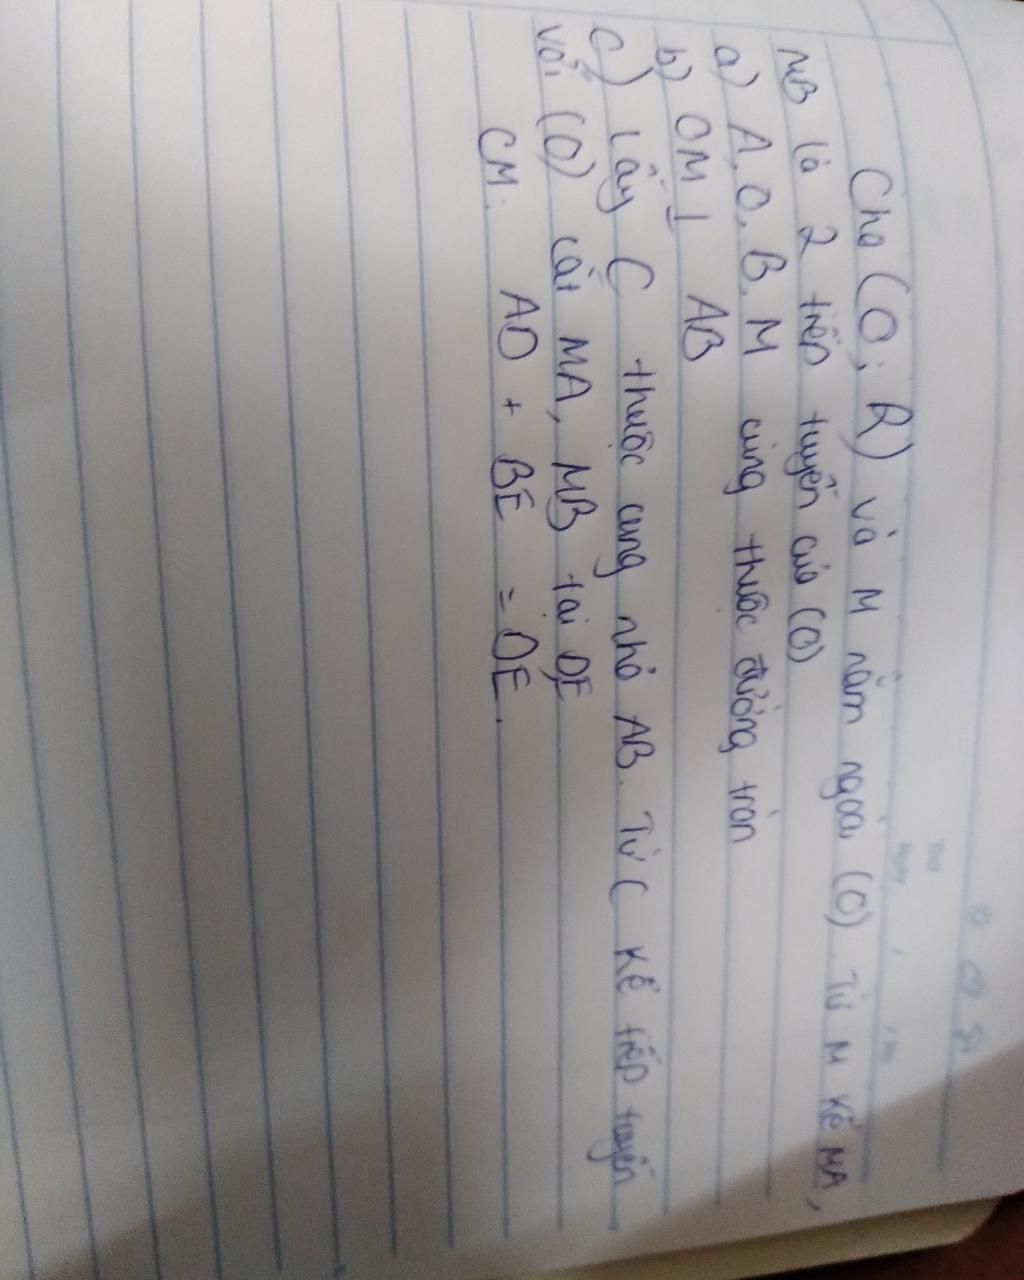 Thứ
Ngày
Cho (O; R) và M nằm ngoài (O). Từ M kẻ MA,
MB là 2 tiếp tuyến của (O)
a) A, O, B, M cùng thuộc đường tròn
b) OM ⊥ AB
c) Lấy C thuộc cung nhỏ AB. Từ C kẻ tiếp tuyến
với (O) cắt MA, MB tại D, E
CM: AD + BE = DE.